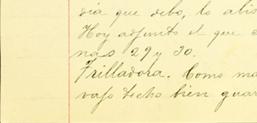 dia que debo, lo alis
Hoy adjunto el que c
nas 29 y 30.
Trilladora. Como ma
vajo techo bien guar